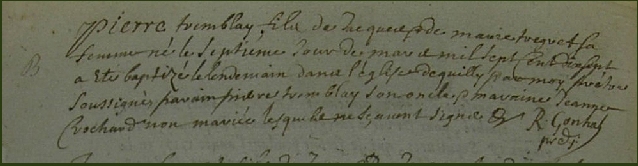 B
Pierre tremblay fils de Jacques & de marie trequet sa
femme né le Septieme Jour de mars mil sept cent
a Eté baptizé le lendemain dans l'église de quilly par moy pretre
soussigné parain pierre tremblay son oncle & maraine Jeanne
Crochard non mariée lesquels ne sçavent signer & R. Gonhal